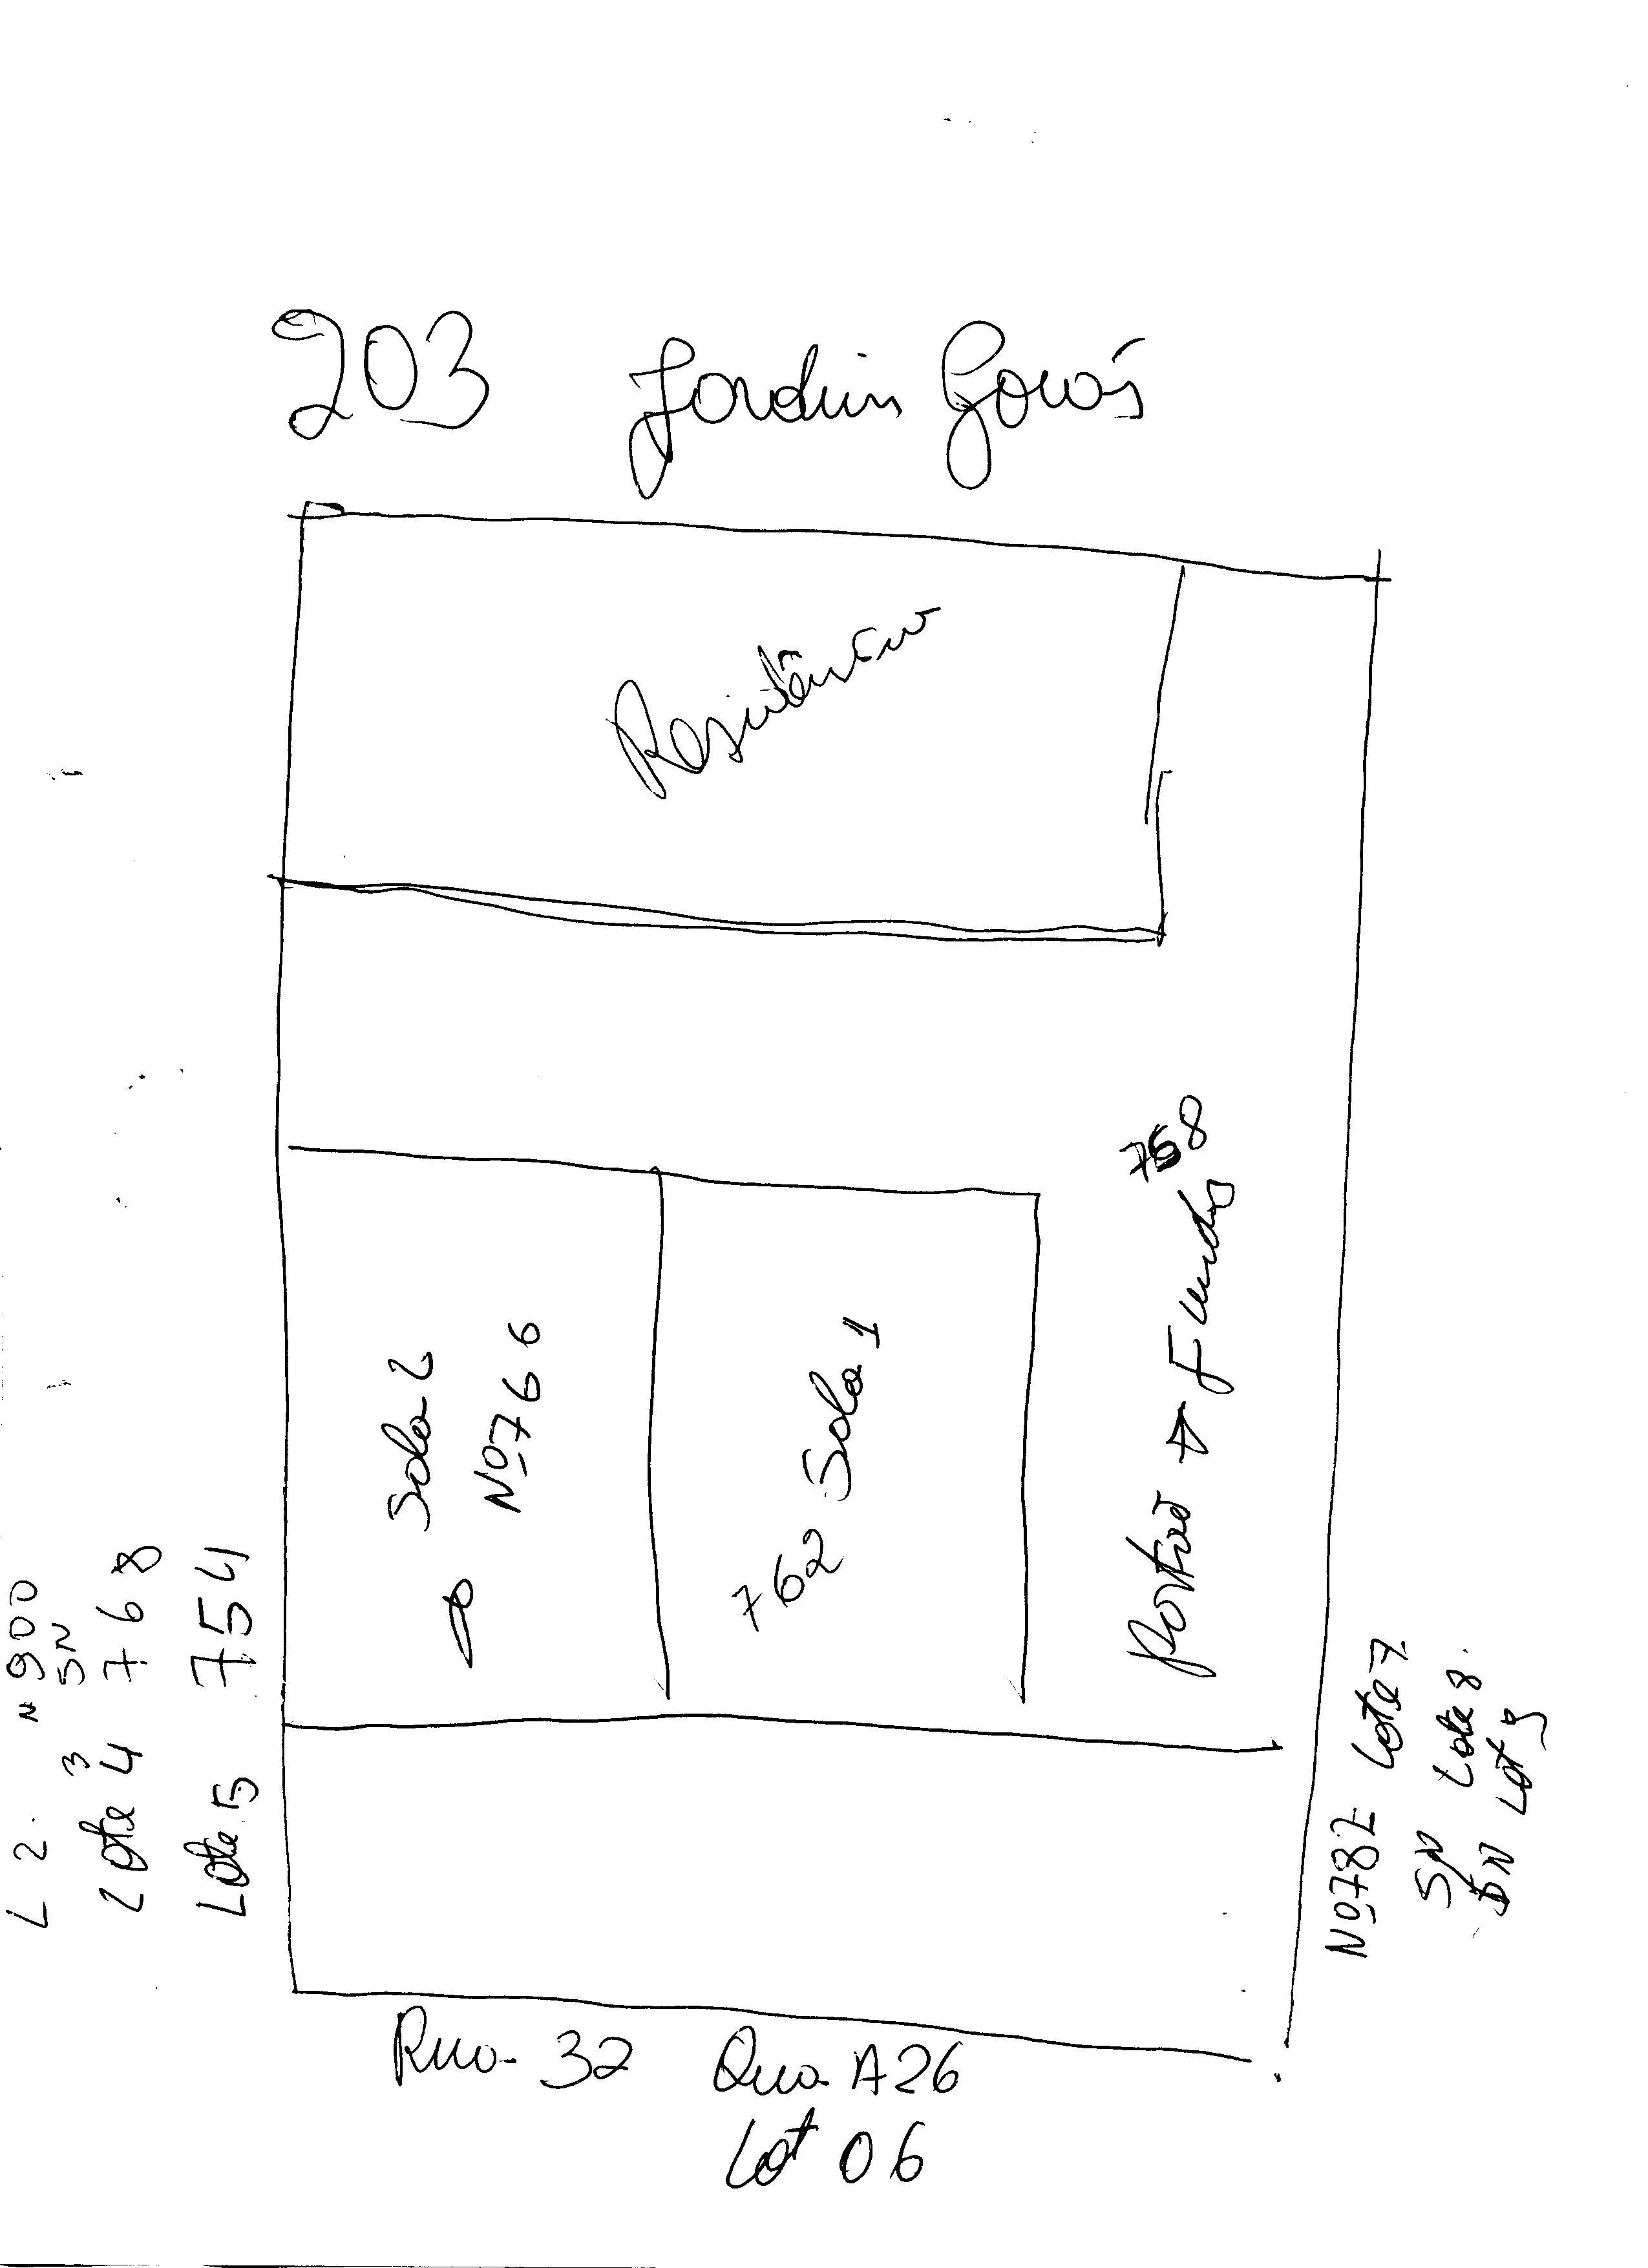 203 Jardim Goiás
Residência
Sala 2
Nº 766
762 Sala 1
Portão → Fundos
768
L 2. N 900
3 SN
Lote 4 768
Lote 5 754
Nº 782 Lote 7
SN Lote 8.
SN Lot 9
Rua 32 Qua A26
Lot 06